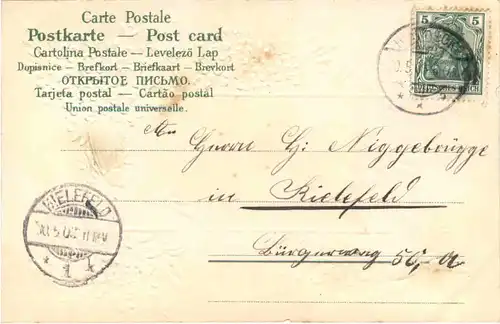 Carte Postale
Postkarte — Post card
Cartolina Postale — Levelező Lap
Dopisnice — Brefkort — Briefkaart — Brevkort
ОТКРЫТОЕ ПИСЬМО.
Tarjeta postal — Cartão postal
Union postale universelle.
5 5
An
Herrn H: Niggebrügge
in Bielefeld
Bürgerweg 56, a
BIELEFELD
* 1 *